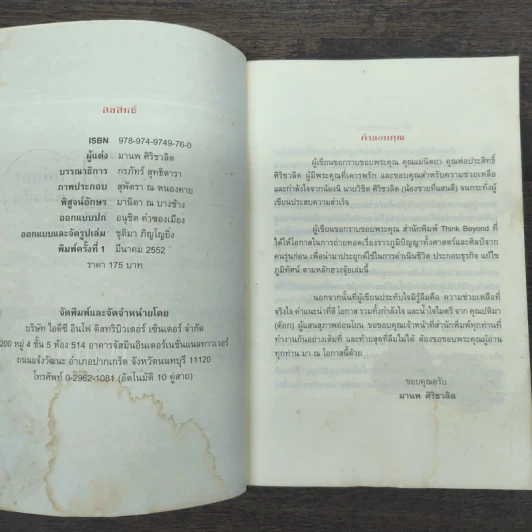 ลิขสิทธิ์
ISBN 978-974-9749-76-0
ผู้แต่ง มานพ ศิริชวลิต
บรรณาธิการ กรภัทร์ สุทธิดารา
ภาพประกอบ สุพัตรา ณ หนองคาย
พิสูจน์อักษร มานิดา ณ บางช้าง
ออกแบบปก อนุชิต คำซองเมือง
ออกแบบและจัดรูปเล่ม ชุติมา ภิญโญยิ่ง
พิมพ์ครั้งที่ 1 มีนาคม 2552
ราคา 175 บาท
จัดพิมพ์และจัดจำหน่ายโดย
บริษัท ไอดีซี อินโฟ ดิสทริบิวเตอร์ เซ็นเตอร์ จำกัด
200 หมู่ 4 ชั้น 5 ห้อง 514 อาคารจัสมินอินเตอร์เนชั่นแนลทาวเวอร์
ถนนแจ้งวัฒนะ อำเภอปากเกร็ด จังหวัดนนทบุรี 11120
โทรศัพท์ 0-2962-1081 (อัตโนมัติ 10 คู่สาย)
คำขอบคุณ
ผู้เขียนขอกราบขอบพระคุณ คุณแม่นิตยา คุณพ่อประสิทธิ์
ศิริชวลิต ผู้มีพระคุณที่เคารพรัก และขอบคุณสำหรับความช่วยเหลือ
และกำลังใจจากน้องนี นายวิชิต ศิริชวลิต (น้องชายที่แสนดี) จนกระทั่งผู้
เขียนประสบความสำเร็จ
ผู้เขียนกราบขอบพระคุณ สำนักพิมพ์ Think Beyond ที่
ได้ให้โอกาสในการถ่ายทอดเรื่องราวภูมิปัญญาทั้งศาสตร์และศิลป์จาก
คนรุ่นก่อน เพื่อนำมาประยุกต์ใช้ในการดำเนินชีวิต ประกอบธุรกิจ แก้ไข
ภูมิทัศน์ ตามหลักฮวงจุ้ยเล่มนี้
นอกจากนั้นที่ผู้เขียนประทับใจมิรู้ลืมคือ ความช่วยเหลือที่
จริงใจ คำแนะนำที่ดี โอกาส รวมทั้งกำลังใจ และน้ำใจไมตรี จาก คุณปติมา
(ต๊อก) ผู้แสนสุภาพอ่อนโยน ขอขอบคุณเจ้าหน้าที่สำนักพิมพ์ทุกท่านที่
ทำงานกันอย่างเต็มที่ และท้ายสุดที่ลืมไม่ได้ ต้องขอขอบพระคุณผู้อ่าน
ทุกท่าน มา ณ โอกาสนี้ด้วย
ขอบคุณครับ
มานพ ศิริชวลิต